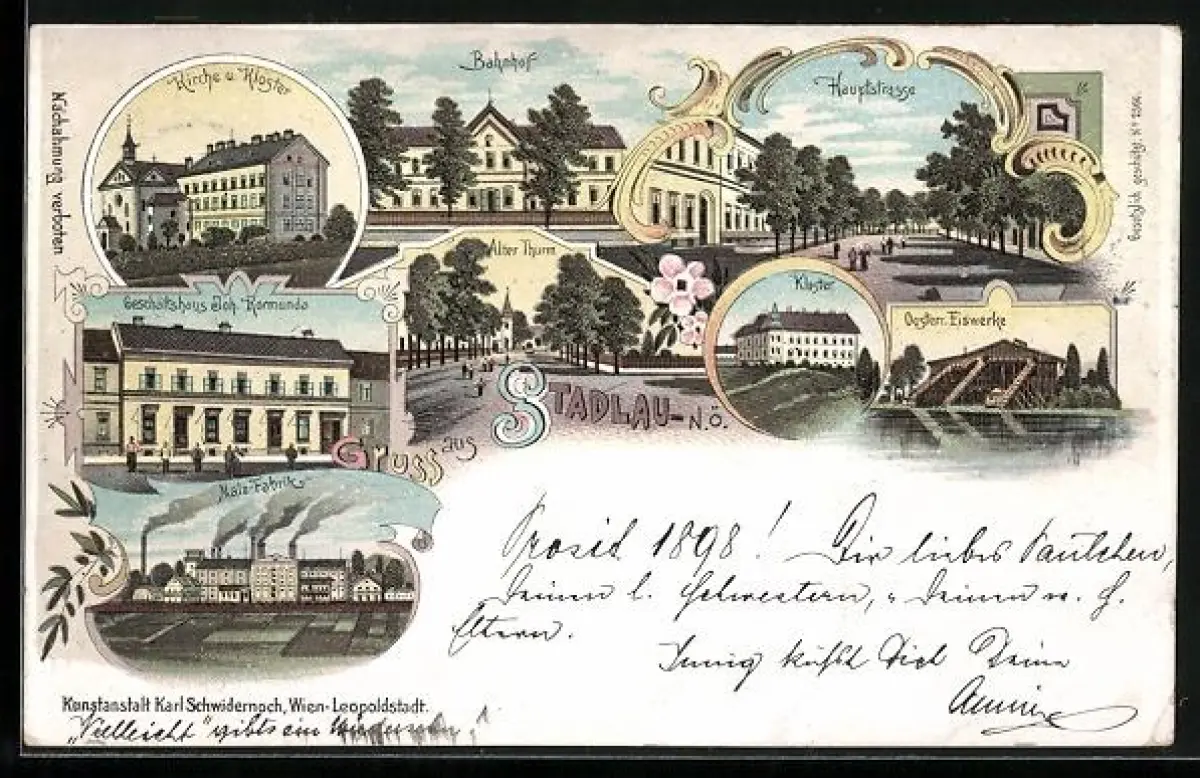 Kirche u. Kloster
Bahnhof
Hauptstrasse
Nachahmung verboten
Gesetzlich geschützt No 2566.
Alter Thurm
Kloster
Oesterr. Eiswerke
Geschäftshaus Joh. Kormunda
Gruss aus
STADLAU-N.Ö.
Malz-Fabrik
Prosit 1898! Dir liebes Pautchen,
Deinen l. Schwestern, Deinen w. g.
Eltern.
Innig küßt Dich Deine
Kunstanstalt Karl Schwidernoch, Wien-Leopoldstadt.
"Vielleicht" gibts ein Wiedersehn!